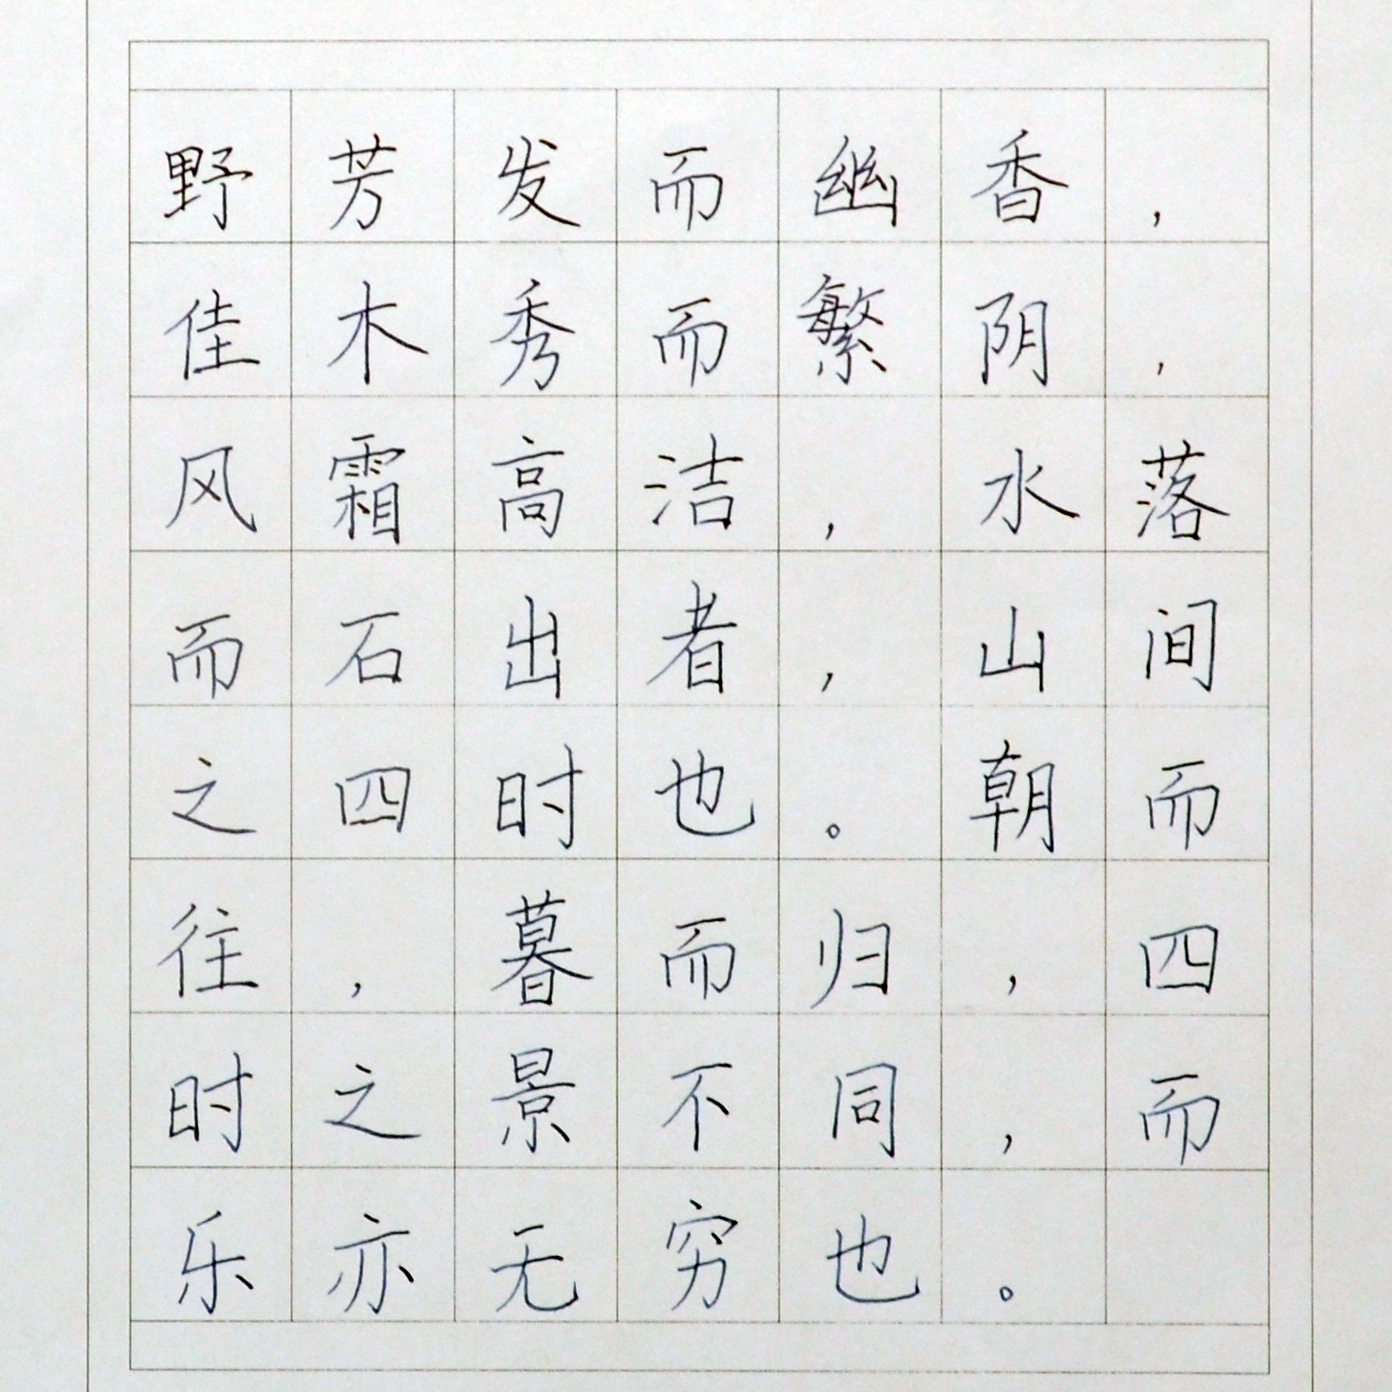 野芳发而幽香，
佳木秀而繁阴，
风霜高洁，水落
而石出者，山间
之四时也。朝而
往，暮而归，四
时之景不同，而
乐亦无穷也。